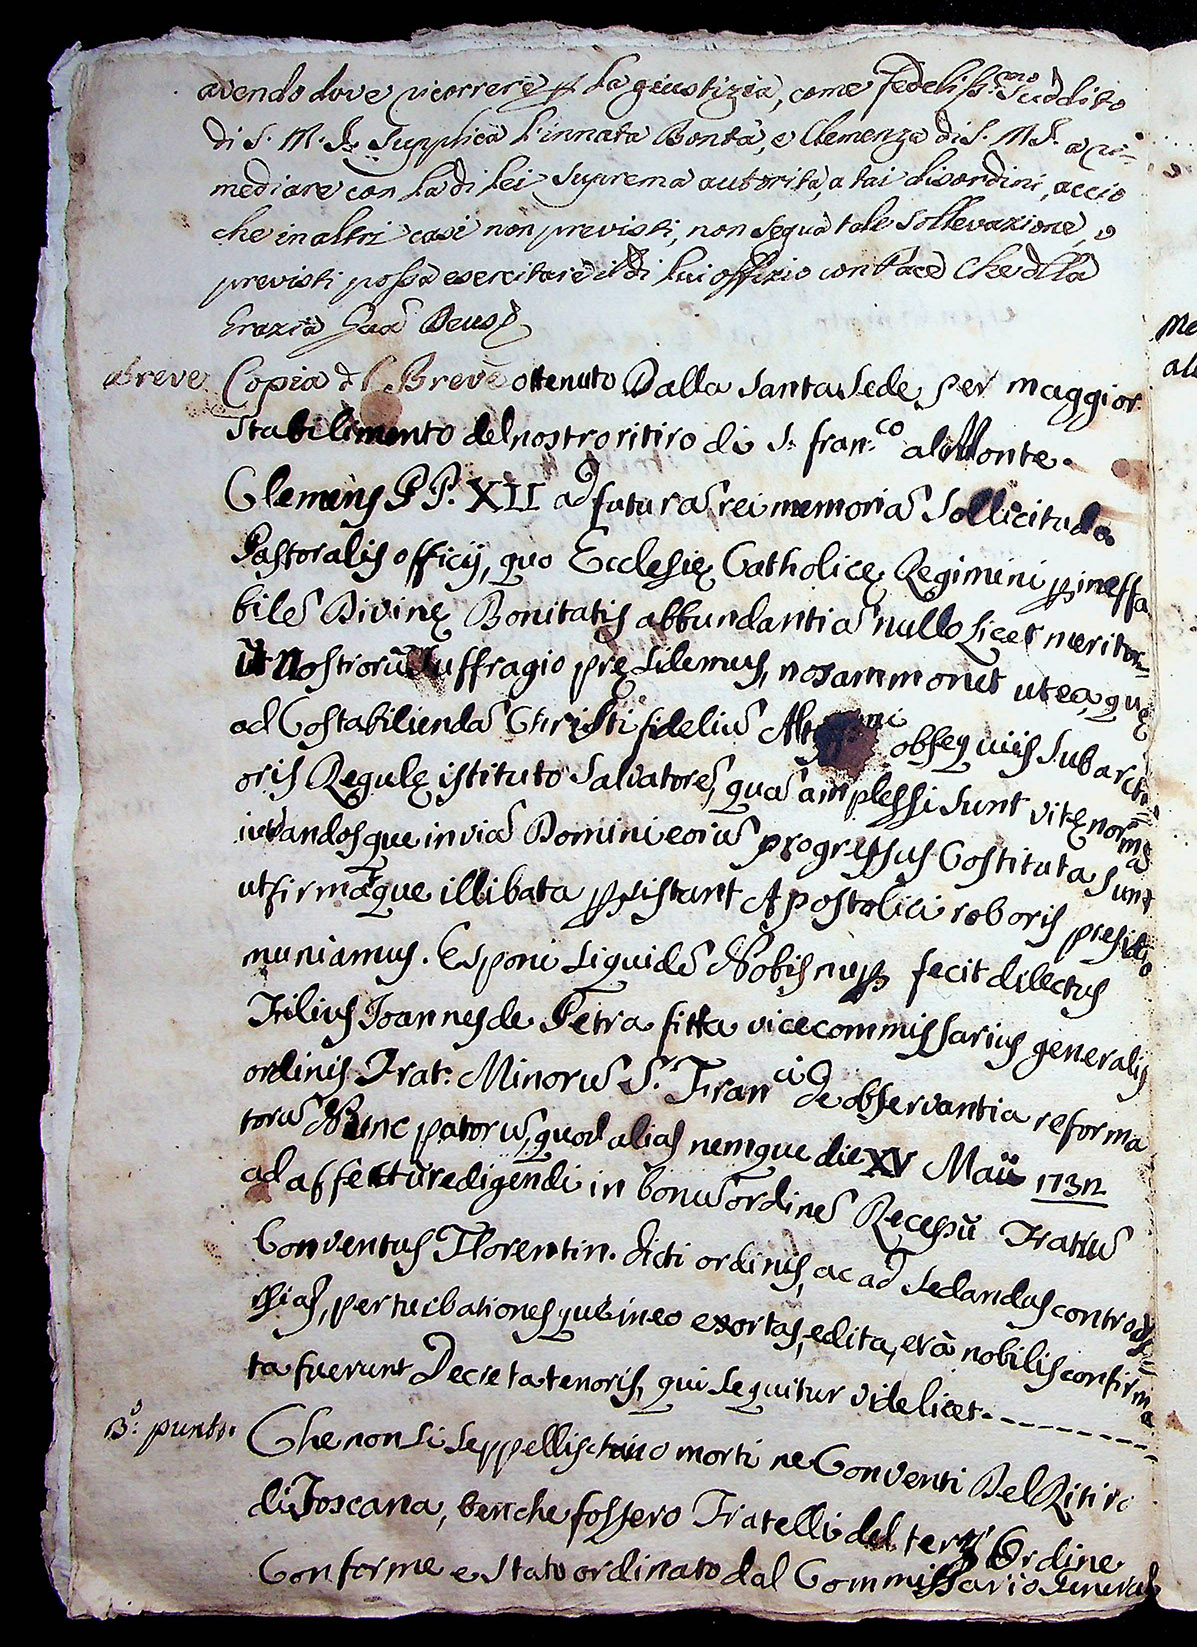 avendo dove ricorrere p La giustizia, come fedeliss.mo Suddito
di S. M. R. Supplica L'innata Bontà, e Clemenza di S. M. R. a ri-
mediare con La di Lei Suprema autorità, a tai disordini, accio
che in altri casi non previsti, non segua tale Sollevazione, o
previsti possa esercitare il di Lui offizio con Pace Che della
Grazia Deus
Breve Copia del Breve ottenuto Dalla Santa Sede per maggior
Stabilimento del nostro ritiro di S. fran.co al Monte.
Clemens P P. XII ad futurã rei memoriã Sollicitudo
Pastoralis officij, quo Ecclesię Catholicę Regimini p ineffa
bilẽ Divinę Bonitatis abbundantiã nullo licet meritor
ũt nostrorũ suffragio pręsidemus, nos ammonet ut ea, quę
ad Costabiliendã Christi fideliũ obsequiis sub arcti
oris Regulę istituto Salvatorẽ, quã amplessi sunt vitę normã
iuvandosque in viã Domini eorũ progressus Costituta sunt
ut firma que illibata psistant Apostolici roboris presidio
muniamus. Esponi siquidẽ Nobis nup fecit dilectus
Filius Joannes de Petra fitta vicecommissarius generalis
ordinis Frat: Minorũ S. Franci de observantia reforma
torũ Nunc patorũ, quod alias nemque die XV Maii 1732
ad affectũ redigendi in bonũ ordinẽ Recessũ Fratrũ
Conventus Florentin. dicti ordinis, ac ad sedandas contro
sias, perturbationesque in eo exortas, edita, et à nobilis confirma
ta fuerunt Decreta tenoris, qui sequitur videlicet - - - - - - -
3.o punto. Che non si seppellischino morti ne Conventi Del Ritiro
di Toscana, benche fossero Fratelli del terz' Ordine
Conforme e stato ordinato dal Commissario Generale
Me
ale